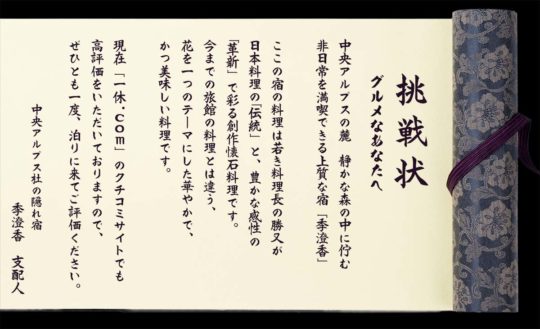 挑戦状
グルメなあなたへ
中央アルプスの麓 静かな森の中に佇む
非日常を満喫できる上質な宿「季澄香」
ここの宿の料理は若き料理長の勝又が
日本料理の「伝統」と、豊かな感性の
「革新」で彩る創作懐石料理です。
今までの旅館の料理とは違う、
花を一つのテーマにした華やかで、
かつ美味しい料理です。
現在「一休.com」のクチコミサイトでも
高評価をいただいておりますので、
ぜひとも一度、泊りに来てご評価ください。
中央アルプス社の隠れ宿
季澄香 支配人